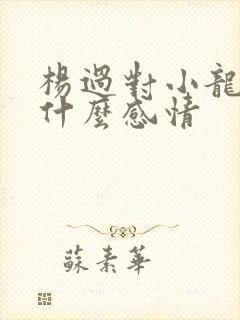 楊過對小龍
什麼感情
蘇素華